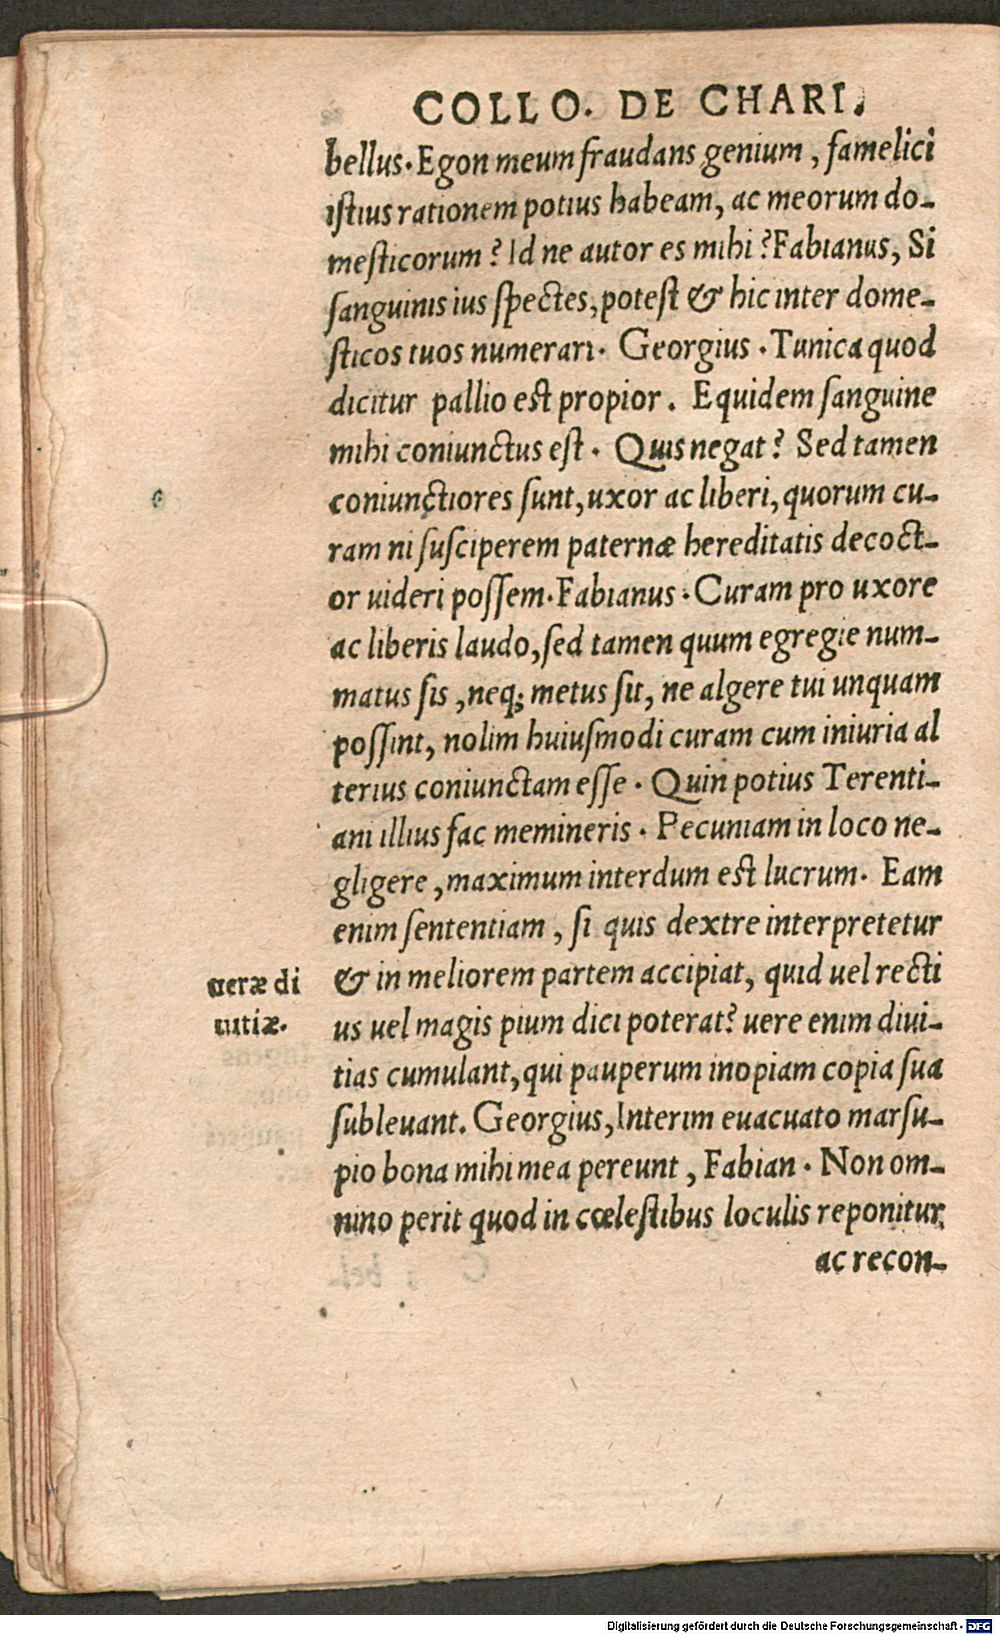 COLLO. DE CHARI.
bellus. Egon meum fraudans genium, famelici
istius rationem potius habeam, ac meorum do-
mesticorum? Id ne autor es mihi? Fabianus, Si
sanguinis ius spectes, potest & hic inter dome-
sticos tuos numerari. Georgius. Tunica quod
dicitur pallio est propior. Equidem sanguine
mihi coniunctus est. Quis negat? Sed tamen
coniunctiores sunt, uxor ac liberi, quorum cu-
ram ni susciperem paternæ hereditatis decoct-
or uideri possem. Fabianus. Curam pro uxore
ac liberis laudo, sed tamen quum egregie num-
matus sis, neq; metus sit, ne algere tui unquam
possint, nolim huiusmodi curam cum iniuria al
terius coniunctam esse. Quin potius Terenti-
ani illius fac memineris. Pecuniam in loco ne-
gligere, maximum interdum est lucrum. Eam
enim sententiam, si quis dextre interpretetur
& in meliorem partem accipiat, quid uel recti
us uel magis pium dici poterat? uere enim diui-
tias cumulant, qui pauperum inopiam copia sua
subleuant. Georgius, Interim euacuato marsu-
pio bona mihi mea pereunt, Fabian. Non om-
nino perit quod in cœlestibus loculis reponitur,
ac recon-
ueræ di
uitiæ.
Digitalisierung gefördert durch die Deutsche Forschungsgemeinschaft - DFG